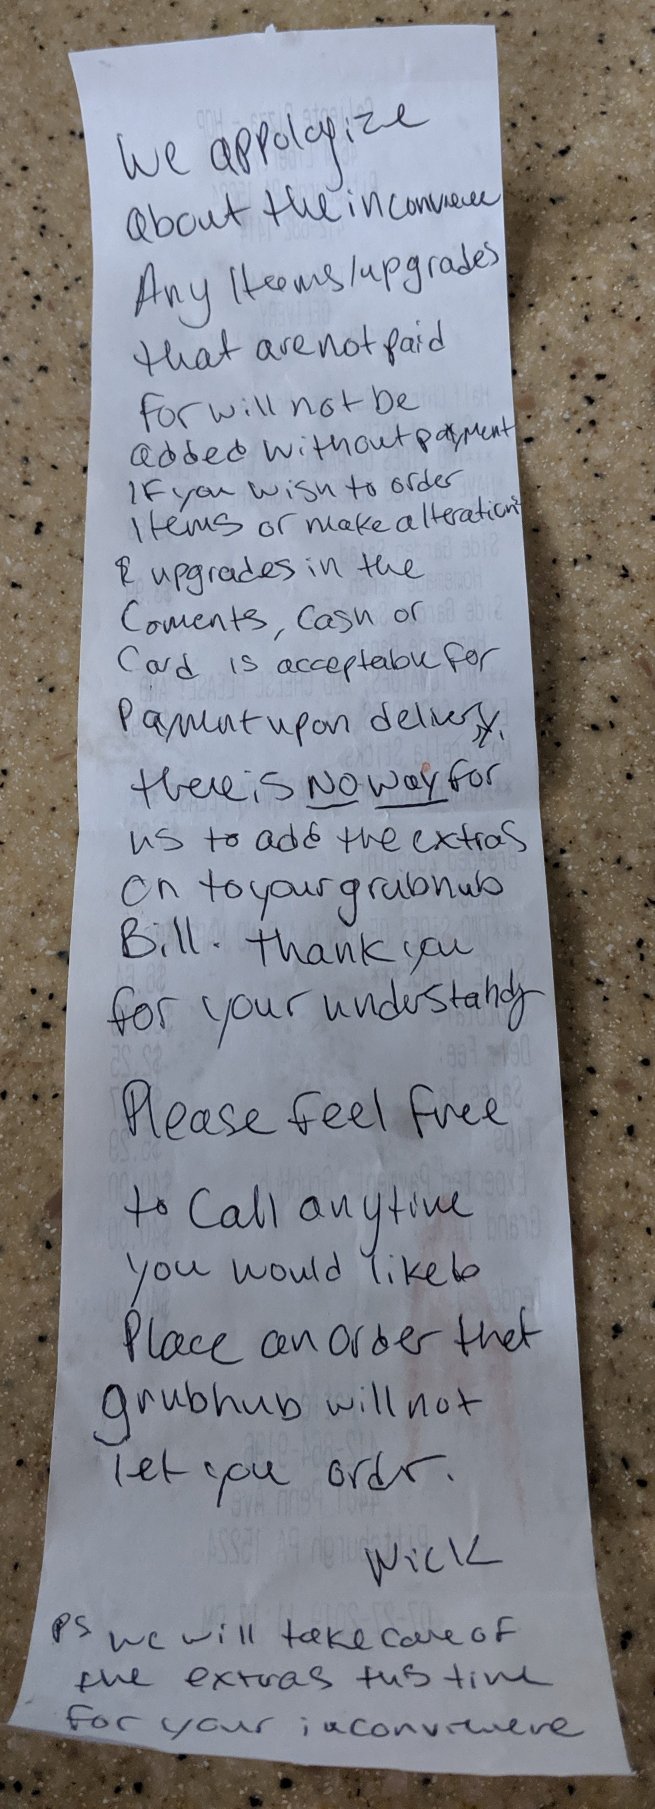 We appologize
about the inconvience
Any Items/upgrades
that are not paid
for will not be
added without payment
If you wish to order
Items or make alterations
& upgrades in the
Coments, Cash or
Card is acceptable for
Payment upon delivery.
there is NO way for
us to add the extras
on to your grubhub
Bill. thank you
for your understandg
Please feel free
to Call anytime
you would like to
Place an order that
grubhub will not
let you order.
Nick
PS we will take care of
the extras this time
for your inconvienere